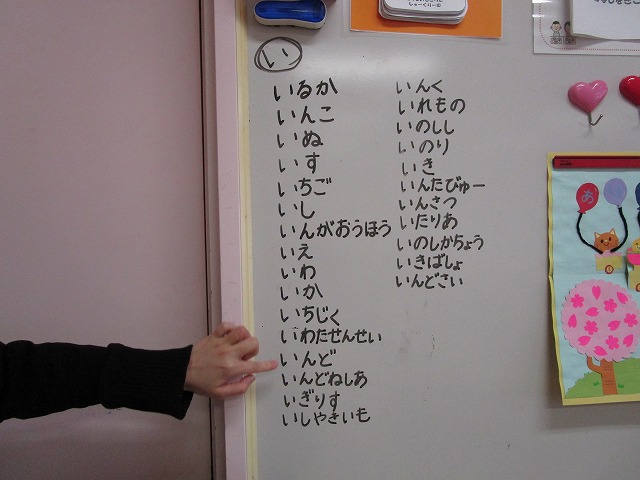 い
いるか
いんこ
いぬ
いす
いちご
いし
いんがおうほう
いえ
いわ
いか
いちじく
いわたせんせい
いんど
いんどねしあ
いぎりす
いしやきいも
いんく
いれもの
いのしし
いのり
いき
いんたびゅー
いんさつ
いたりあ
いのしかちょう
いきばしょ
いんどさい
あ